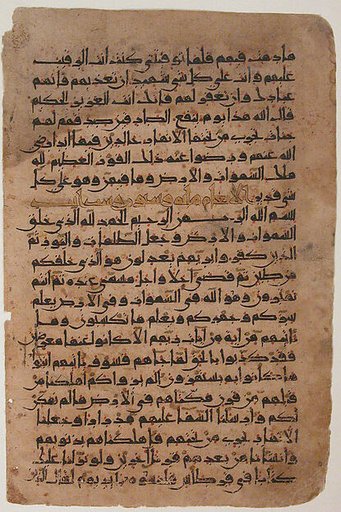 ما دمت فيهم فلما توفيتني كنت انت الرقيب
عليهم وانت على كل شي شهيد ان تعذبهم فانهم
عبادك وان تغفر لهم فانك انت العزيز الحكيم
قال الله هذا يوم ينفع الصادقين صدقهم لهم
جنات تجري من تحتها الانهار خالدين فيها ابدا رضي
الله عنهم ورضوا عنه ذلك الفوز العظيم لله
ملك السموات والارض وما فيهن وهو على كل
شي قدير الانعام
بسم الله الرحمن الرحيم الحمد لله الذي خلق
السموات والارض وجعل الظلمات والنور ثم
الذين كفروا بربهم يعدلون هو الذي خلقكم
من طين ثم قضى اجلا واجل مسمى عنده ثم انتم
تمترون وهو الله في السموات وفي الارض يعلم
سركم وجهركم ويعلم ما تكسبون وما
تاتيهم من اية من ايات ربهم الا كانوا عنها معرضين
فقد كذبوا بالحق لما جاهم فسوف ياتيهم انبوا
ما كانوا به يستهزون الم يروا كم اهلكنا من
قبلهم من قرن مكناهم في الارض ما لم نمكن
لكم وارسلنا السما عليهم مدرارا وجعلنا
الانهار تجري من تحتهم فاهلكناهم بذنوبهم
وانشانا من بعدهم قرنا اخرين ولو نزلنا عليك
كتابا في قرطاس فلمسوه بايديهم لقال الذين